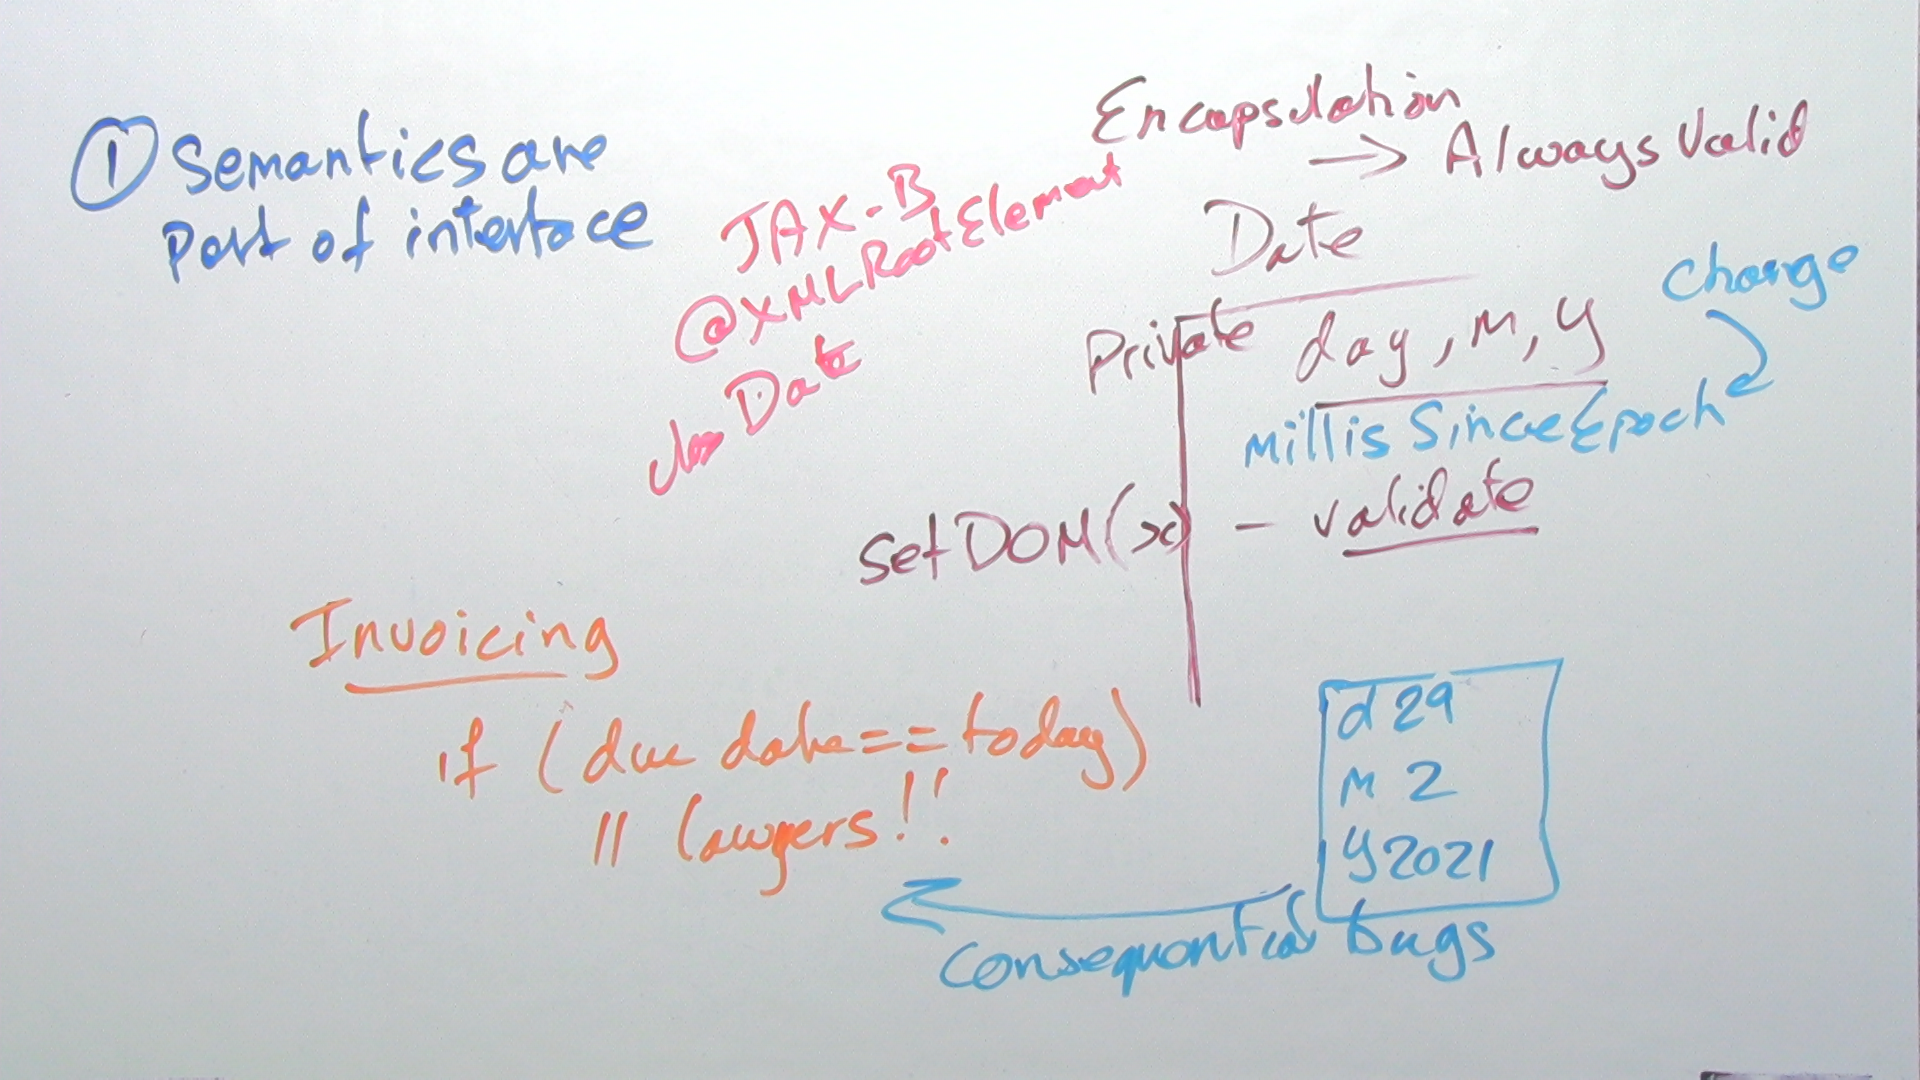 ① Semantics are
Part of interface
JAX-B
@XMLRootElement
class Date
Encapsulation
→ Always Valid
Date
Private day, m, y
Change
millis Since Epoch
setDOM(x) - validate
Invoicing
if (due date == today)
// lawyers!!
d 29
m 2
y 2021
Consequential bugs